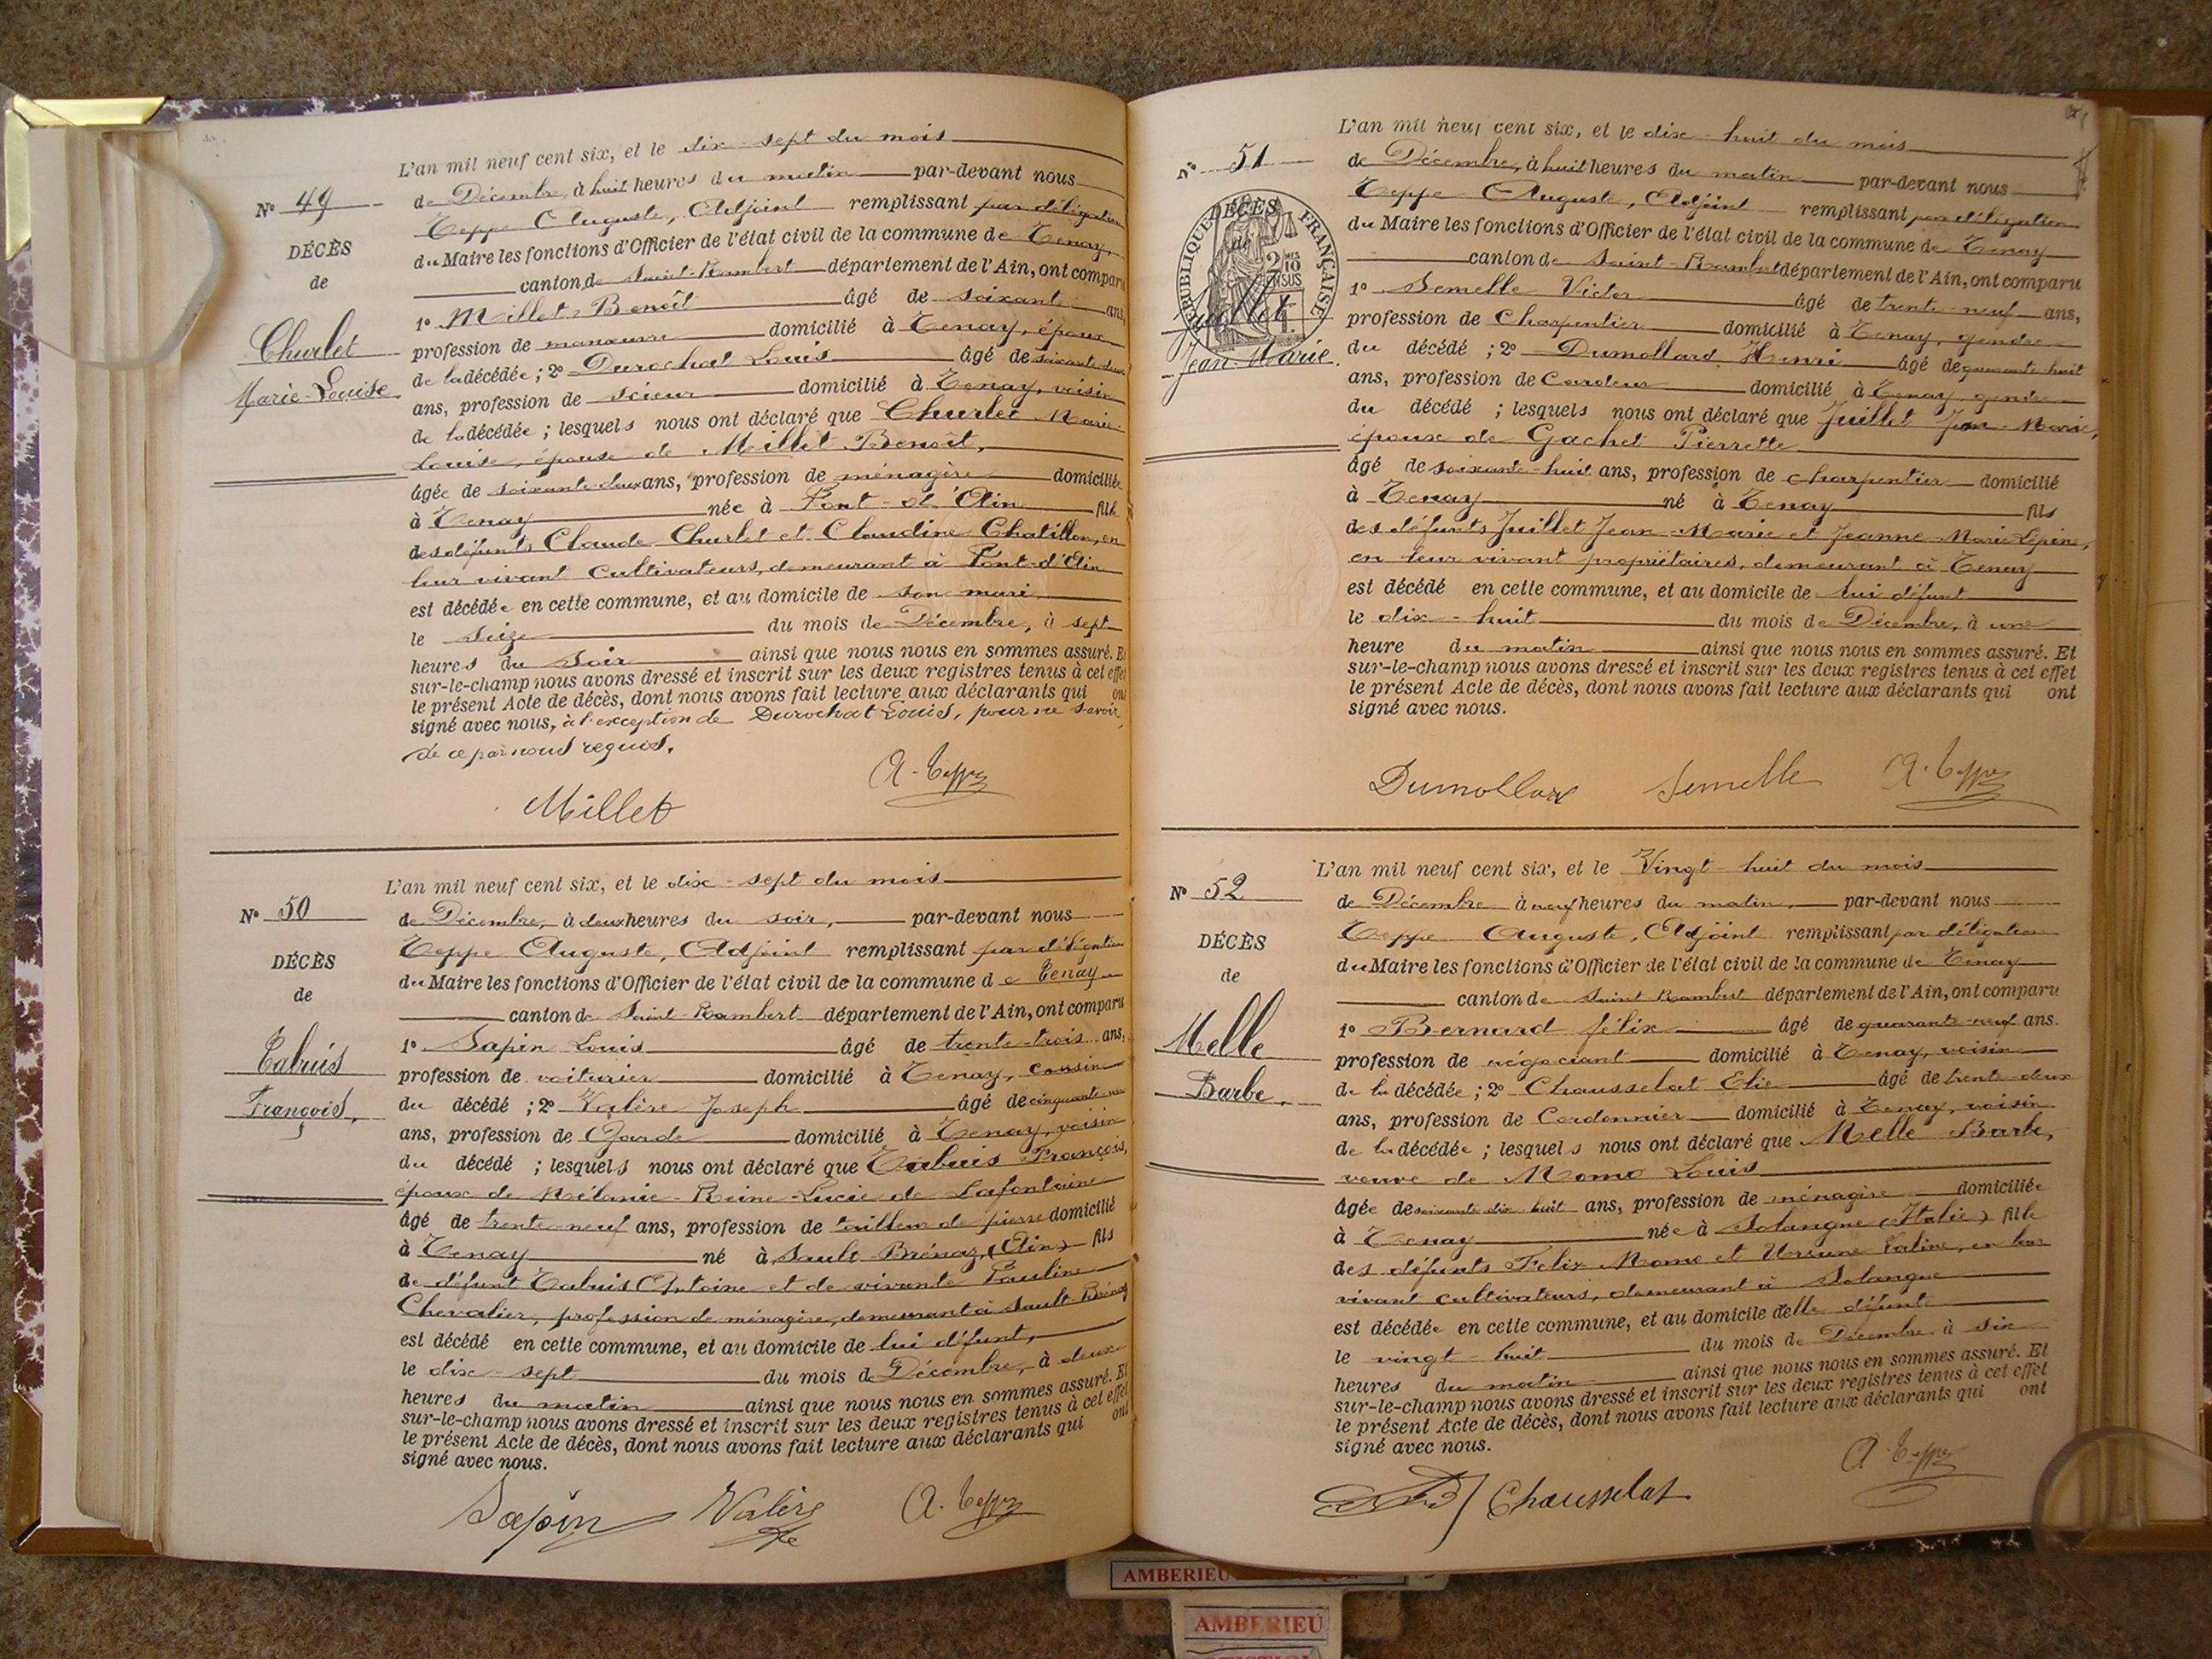 L'an mil neuf cent six, et le dix-sept du mois
Nº 49
de Décembre, à huit heures du matin par-devant nous
Teppe Auguste, Adjoint remplissant par délégation
DÉCÈS
du Maire les fonctions d'Officier de l'état civil de la commune de Tenay,
de
canton de Saint-Rambert département de l'Ain, ont comparu
1º Millet Benoît âgé de soixante ans,
Churlet
profession de manœuvre domicilié à Tenay, époux
de la décédée ; 2º Durochat Louis âgé de soixante-deux
Marie-Louise
ans, profession de scieur domicilié à Tenay, voisin
de la décédée ; lesquels nous ont déclaré que Churlet Marie-
Louise, épouse de Millet Benoît,
âgée de soixante-deux ans, profession de ménagère domiciliée
à Tenay née à Pont-d'Ain fille
des défunts Claude Churlet et Claudine Chatillon, en
leur vivant cultivateurs, demeurant à Pont-d'Ain
est décédée en cette commune, et au domicile de son mari
le seize du mois de Décembre, à sept
heures du soir ainsi que nous nous en sommes assuré. Et
sur-le-champ nous avons dressé et inscrit sur les deux registres tenus à cet effet
le présent Acte de décès, dont nous avons fait lecture aux déclarants qui ont
signé avec nous, à l'exception de Durochat Louis, pour ne savoir
de ce par nous requis.
A. Teppe
Millet
L'an mil neuf cent six, et le dix-sept du mois
Nº 50
de Décembre, à deux heures du soir, par-devant nous
Teppe Auguste, Adjoint remplissant par délégation
DÉCÈS
du Maire les fonctions d'Officier de l'état civil de la commune de Tenay
de
canton de Saint-Rambert département de l'Ain, ont comparu
1º Sapin Louis âgé de trente-trois ans,
Tabuis
profession de voiturier domicilié à Tenay, cousin
François,
du décédé ; 2º Valère Joseph âgé de cinquante-
ans, profession de Garde domicilié à Tenay, voisin
du décédé ; lesquels nous ont déclaré que Tabuis François,
époux de Mélanie-Reine-Lucie de Lafontaine
âgé de trente-neuf ans, profession de tailleur de pierre domicilié
à Tenay né à Sault-Brénaz, (Ain) fils
de défunt Tabuis Antoine et de vivante Pauline
Chevalier, profession de ménagère, demeurant à Sault-Brénaz
est décédé en cette commune, et au domicile de lui défunt,
le dix-sept du mois de Décembre, à deux
heures du matin ainsi que nous nous en sommes assuré. Et
sur-le-champ nous avons dressé et inscrit sur les deux registres tenus à cet effet
le présent Acte de décès, dont nous avons fait lecture aux déclarants qui ont
signé avec nous.
Sapin Valère A. Teppe
L'an mil neuf cent six, et le dix-huit du mois
Nº 51
de Décembre, à huit heures du matin par-devant nous
Teppe Auguste, Adjoint remplissant par délégation
DÉCÈS
de
RÉPUBLIQUE FRANÇAISE
du Maire les fonctions d'Officier de l'état civil de la commune de Tenay
canton de Saint-Rambert département de l'Ain, ont comparu
1º Semelle Victor âgé de trente-neuf ans,
Juillet
profession de Charpentier domicilié à Tenay, gendre
Jean-Marie.
du décédé ; 2º Dumollard Henri âgé de quarante-huit
ans, profession de Cardeur domicilié à Tenay, gendre
du décédé ; lesquels nous ont déclaré que Juillet Jean-Marie,
époux de Gachet Pierrette
âgé de soixante-huit ans, profession de charpentier domicilié
à Tenay né à Tenay fils
des défunts Juillet Jean-Marie et Jeanne-Marie Lépine,
en leur vivant propriétaires, demeurant à Tenay
est décédé en cette commune, et au domicile de lui défunt
le dix-huit du mois de Décembre, à une
heure du matin ainsi que nous nous en sommes assuré. Et
sur-le-champ nous avons dressé et inscrit sur les deux registres tenus à cet effet
le présent Acte de décès, dont nous avons fait lecture aux déclarants qui ont
signé avec nous.
Dumollard Semelle A. Teppe
L'an mil neuf cent six, et le Vingt-huit du mois
Nº 52
de Décembre à neuf heures du matin, par-devant nous
Teppe Auguste, Adjoint remplissant par délégation
DÉCÈS
du Maire les fonctions d'Officier de l'état civil de la commune de Tenay
de
canton de Saint-Rambert département de l'Ain, ont comparu
1º Bernard félix âgé de quarante-neuf ans.
Melle
profession de négociant domicilié à Tenay, voisin
Barbe.
de la décédée ; 2º Chausselat Elie âgé de trente-deux
ans, profession de Cordonnier domicilié à Tenay, voisin
de la décédée ; lesquels nous ont déclaré que Melle Barbe,
veuve de Momo Louis
âgée de soixante dix huit ans, profession de ménagère domiciliée
à Tenay née à Solangne (Italie) fille
des défunts Felix Momo et Ursune en leur
vivant cultivateurs, demeurant à Solangne
est décédée en cette commune, et au domicile d'elle défunte
le vingt-huit du mois de Décembre à six
heures du matin ainsi que nous nous en sommes assuré. Et
sur-le-champ nous avons dressé et inscrit sur les deux registres tenus à cet effet
le présent Acte de décès, dont nous avons fait lecture aux déclarants qui ont
signé avec nous.
A. Teppe
Chausselat
AMBERIEU
AMBERIEU